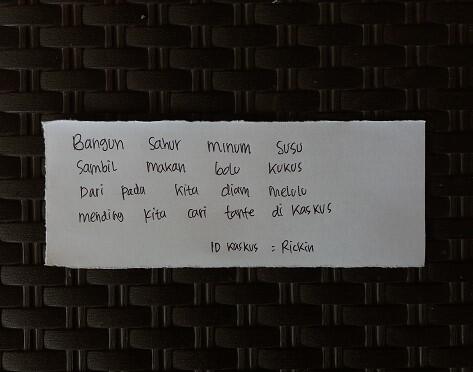 Bangun sahur minum susu
Sambil makan bolu kukus
Dari pada kita diam melulu
mending kita cari tante di KasKus
ID KasKus = Rickin